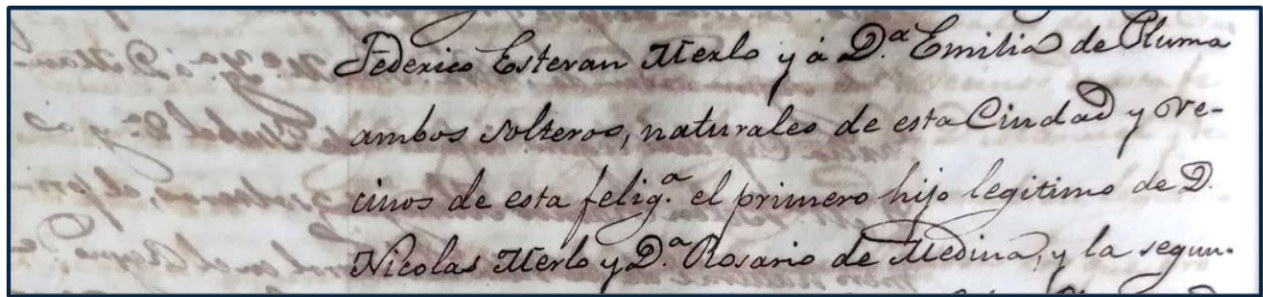 Federico Estevan Merlo y á D.ª Emilia de Pluma
ambos solteros, naturales de esta Ciudad y ve-
cinos de esta felig.ª el primero hijo legitimo de D.
Nicolas Merlo y D.ª Rosario de Medina, y la segun-